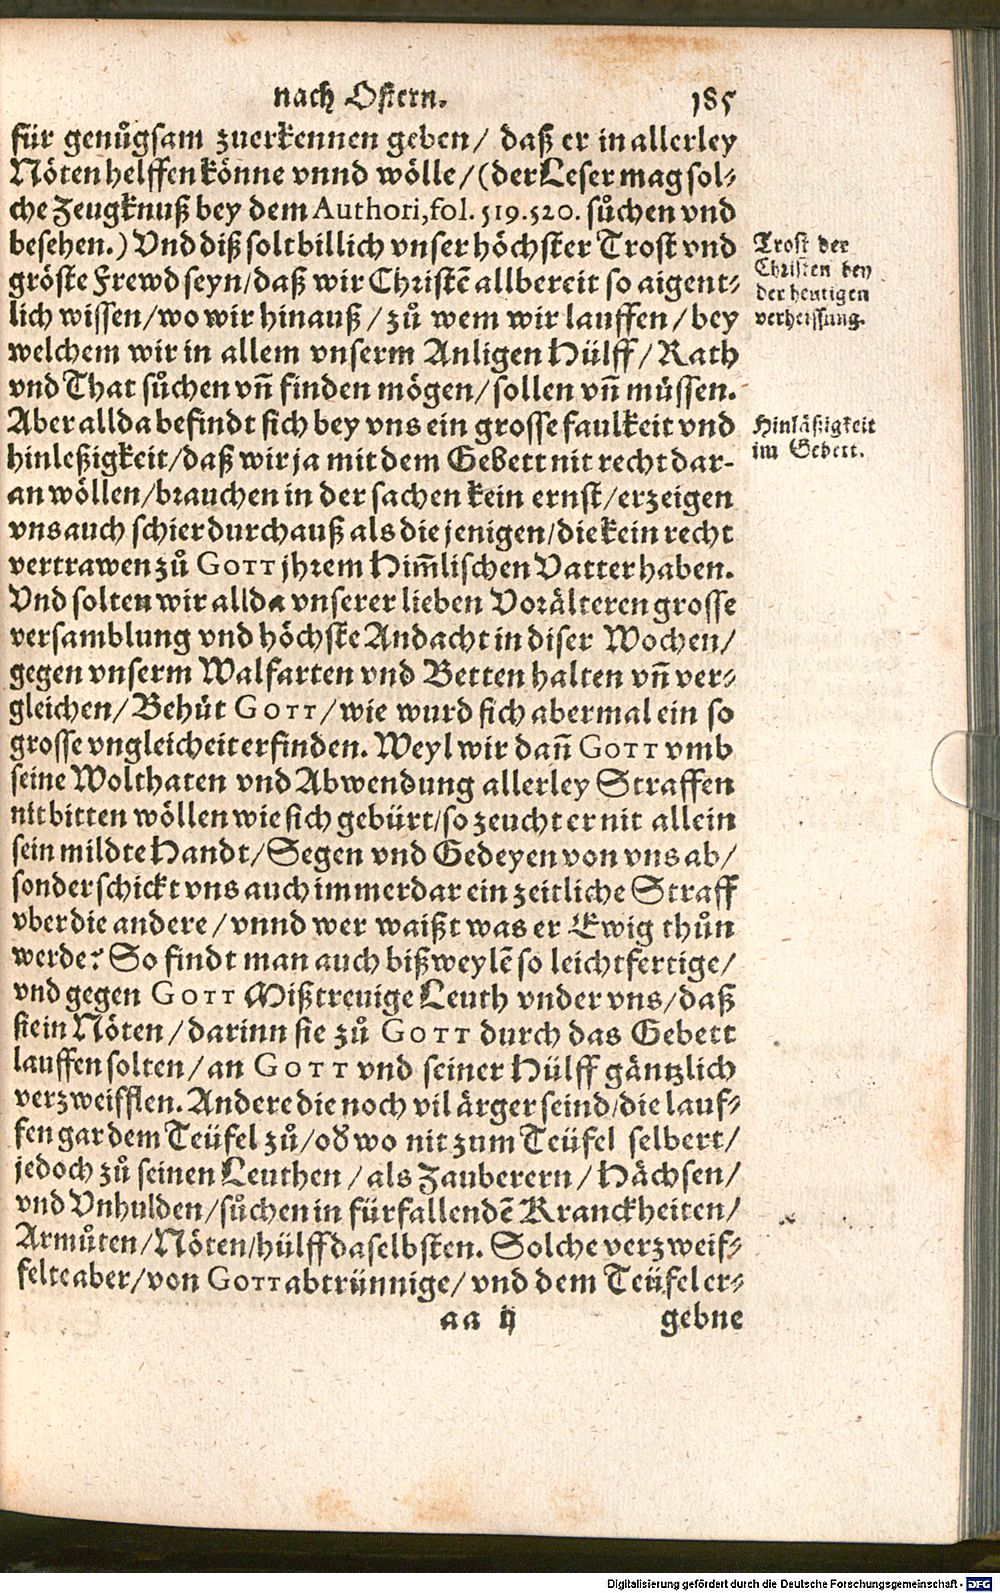 nach Ostern. 185
für genůgsam zuerkennen geben/ daß er in allerley
Nöten helffen könne vnnd wölle/ (der Leser mag sol-
che Zeugknuß bey dem Authori, fol. 519.520. sůchen vnd
besehen.) Vnd diß solt billich vnser höchster Trost vnd
gröste Frewd seyn/ daß wir Christẽ allbereit so aigent-
lich wissen/ wo wir hinauß/ zů wem wir lauffen/ bey
welchem wir in allem vnserm Anligen Hülff/ Rath
vnd That sůchen vñ finden mögen/ sollen vñ müssen.
Aber allda befindt sich bey vns ein grosse faulkeit vnd
hinleßigkeit/ daß wir ja mit dem Gebett nit recht dar-
an wöllen/ brauchen in der sachen kein ernst/ erzeigen
vns auch schier durchauß als die jenigen/ die kein recht
vertrawen zů GOTT jhrem Him̃lischen Vatter haben.
Vnd solten wir allda vnserer lieben Vorälteren grosse
versamblung vnd höchste Andacht in diser Wochen/
gegen vnserm Walfarten vnd Betten halten vñ ver-
gleichen/ Behüt GOTT/ wie wurd sich abermal ein so
grosse vngleicheit erfinden. Weyl wir dañ GOTT vmb
seine Wolthaten vnd Abwendung allerley Straffen
nit bitten wöllen wie sich gebürt/ so zeucht er nit allein
sein mildte Handt/ Segen vnd Gedeyen von vns ab/
sonder schickt vns auch immerdar ein zeitliche Straff
vber die andere/ vnnd wer waißt was er Ewig thůn
werde? So findt man auch bißweylẽ so leichtfertige/
vnd gegen GOTT Mißtrewige Leuth vnder vns/ daß
sie in Nöten/ darinn sie zů GOTT durch das Gebett
lauffen solten/ an GOTT vnd seiner Hülff gäntzlich
verzweifflen. Andere die noch vil ärger seind/ die lauf-
fen gar dem Teüfel zů/ oð wo nit zum Teüfel selbert/
jedoch zů seinen Leuthen/ als Zauberern/ Hächsen/
vnd Vnhulden/ sůchen in fürfallendẽ Kranckheiten/
Armůten/ Nöten/ hülff daselbsten. Solche verzweif-
felte aber/ von GOTT abtrünnige/ vnd dem Teüfel er-
aa ij gebne
Trost der
Christen bey
der heutigen
verheissung.
Hinläßigkeit
im Gebett.
Digitalisierung gefördert durch die Deutsche Forschungsgemeinschaft - DFG